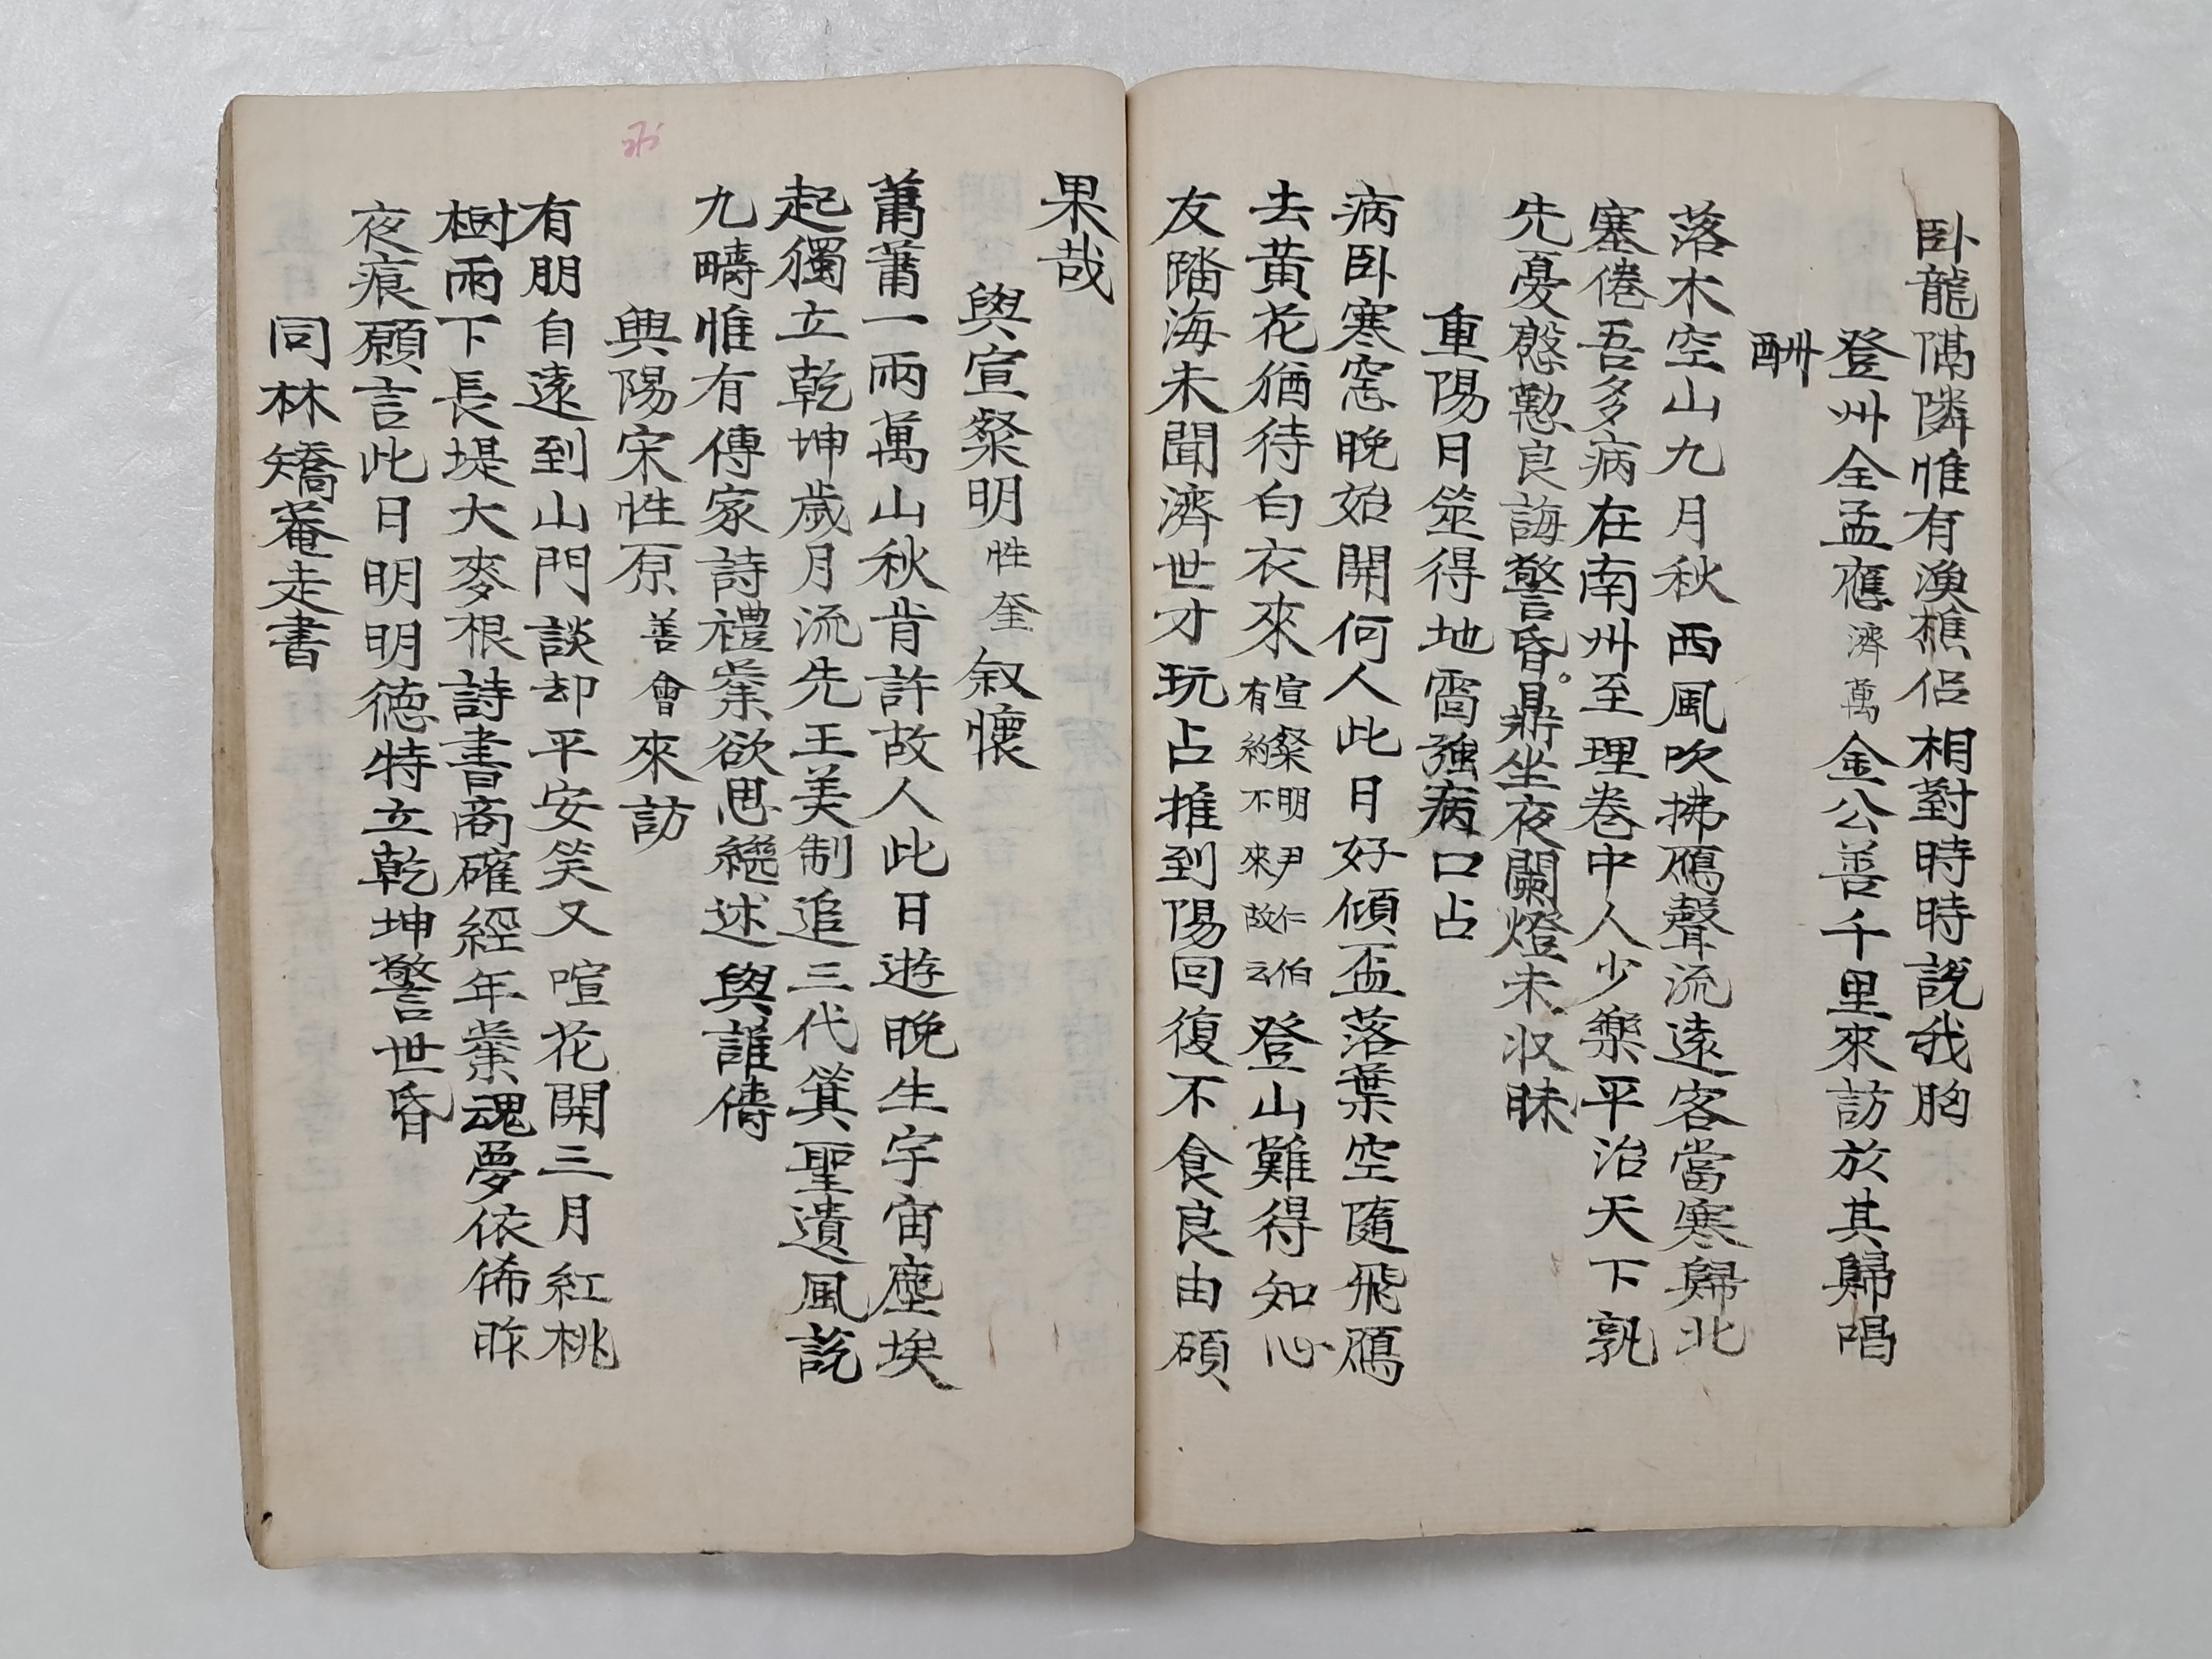 卧龍隅隣惟有漁樵侣相對時時說我胸
登州全孟應濟萬金公善千里來訪於其歸唱
酬
落木空山九月秋西風吹拂鴈聲流遠客當寒歸北
塞倦吾多病在南州至理卷中人少樂平治天下孰
先憂慇懃良誨警昏鼎坐夜闌燈未收昧
重陽日筮得地雷強病口占
病卧寒窓晩始開何人此日好傾盃落葉空隨飛鴈
去黃花猶待白衣來宣粲明尹仁伯有約不來故云登山難得知心
友踏海未聞濟世才玩占推到陽回復不食良由碩
果哉
與宣粲明性奎叙懷
蕭蕭一雨萬山秋肯許故人此日遊晚生宇宙塵埃
起獨立乾坤歲月流先王美制追三代箕聖遺風説
九疇惟有傳家詩禮業欲思繼述與誰儔
興陽宋性原善會來訪
有朋自遠到山門談却平安笑又喧花開三月紅桃
樹雨下長堤大麥根詩書商確經年業魂夢依俙昨
夜痕願言此日明明德特立乾坤警世昏
同林矯菴走書